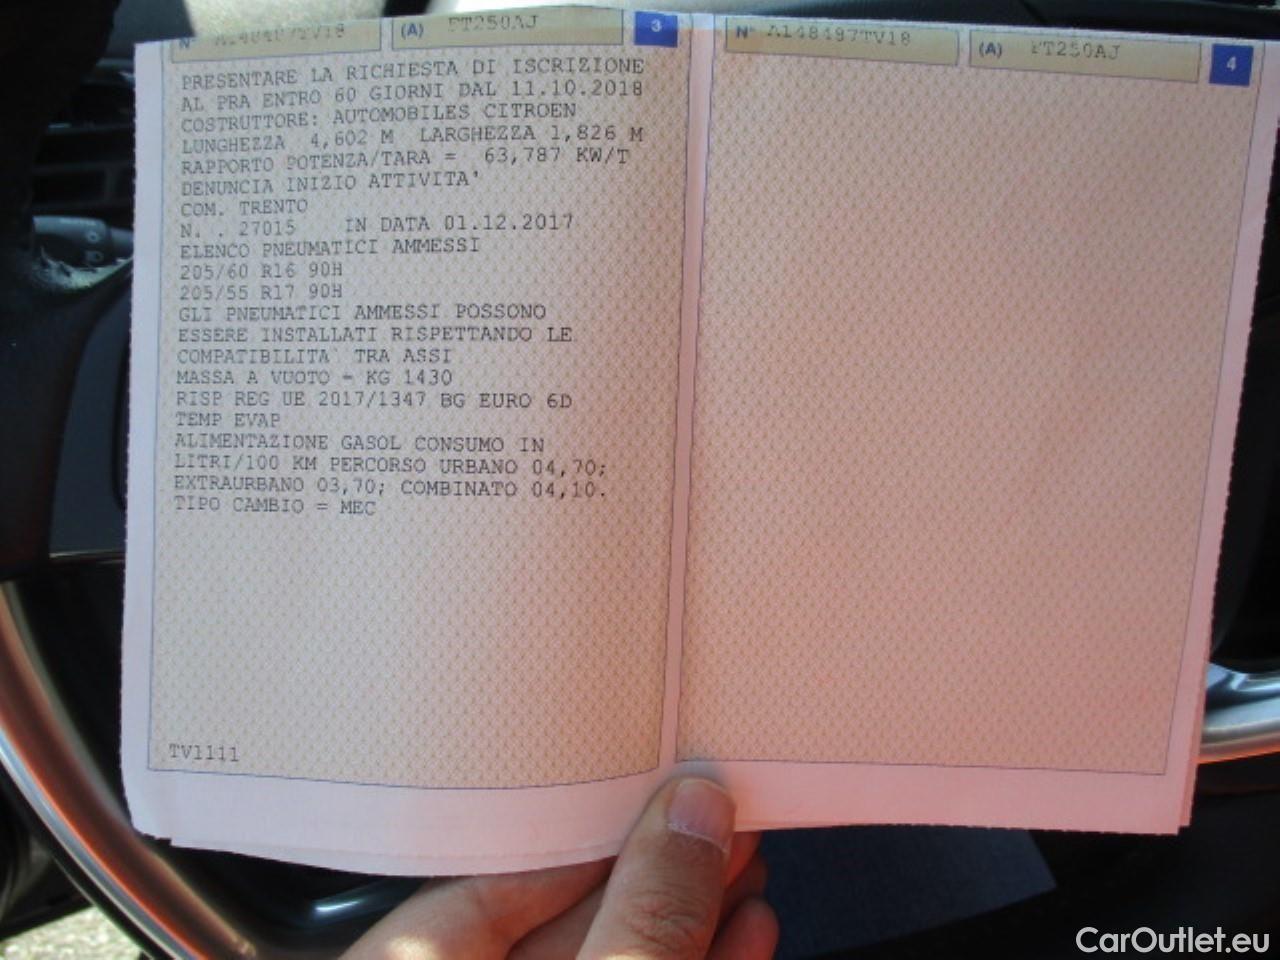 N° A148487TV18 (A) FT250AJ 3
PRESENTARE LA RICHIESTA DI ISCRIZIONE
AL PRA ENTRO 60 GIORNI DAL 11.10.2018
COSTRUTTORE: AUTOMOBILES CITROEN
LUNGHEZZA 4,602 M LARGHEZZA 1,826 M
RAPPORTO POTENZA/TARA = 63,787 KW/T
DENUNCIA INIZIO ATTIVITA'
COM. TRENTO
N. . 27015 IN DATA 01.12.2017
ELENCO PNEUMATICI AMMESSI
205/60 R16 90H
205/55 R17 90H
GLI PNEUMATICI AMMESSI POSSONO
ESSERE INSTALLATI RISPETTANDO LE
COMPATIBILITA` TRA ASSI
MASSA A VUOTO = KG 1430
RISP REG UE 2017/1347 BG EURO 6D
TEMP EVAP
ALIMENTAZIONE GASOL CONSUMO IN
LITRI/100 KM PERCORSO URBANO 04,70;
EXTRAURBANO 03,70; COMBINATO 04,10.
TIPO CAMBIO = MEC
TV1111
N° A148487TV18 (A) FT250AJ 4
CarOutlet.eu